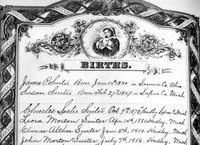 BIRTHS.
James Suiter Born Jan 16 1841 in Co. Ohio
Susan Suiter Born Feb 27 1847 in Lapeer Co. Mich
Charles Leslie Suiter Oct. 9 1871 Hadley Lapeer Co. Mich
Leora Morton Suiter Apr. 15, 1882 Hadley, Mich.
Clarice Althea Suiter Jan 5th, 1910. Hadley, Mich.
John Morton Suiter, July 7th, 1916. Hadley, Mich.